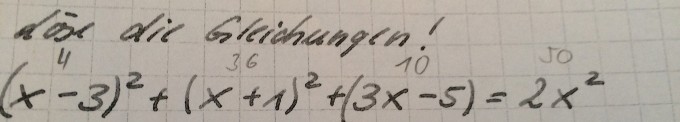 Löse die Gleichungen!
4 36 10 50
(x - 3)² + (x + 1)² + (3x - 5) = 2x²